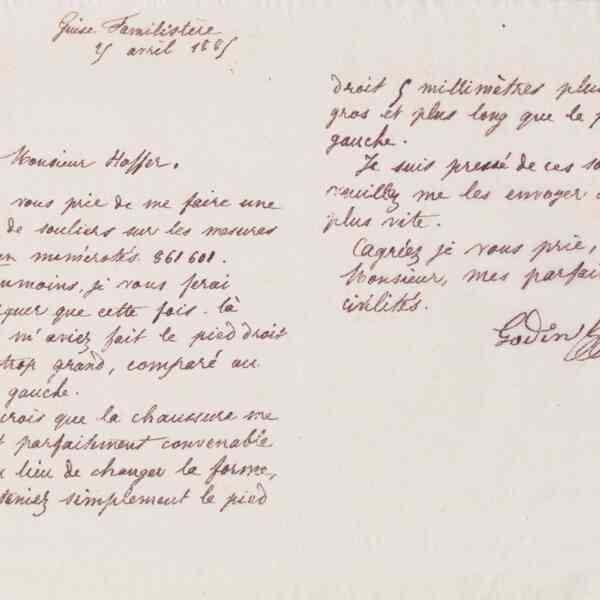 Guise Familistère
25 avril 1885
Monsieur Hoffer,
vous prie de me faire une
de souliers sur les mesures
numérotés 861 601.
moins, je vous ferai
quer que cette fois-là
m'aviez fait le pied droit
trop grand, comparé au
gauche.
rois que la chaussure me
t parfaitment convenable
lieu de changer la forme,
teniez simplement le pied
droit 5 millimètres plus
gros et plus long que le p
gauche.
Je suis pressé de ces so
veuillez me les envoyer
plus vite.
Agréez je vous prie,
Monsieur, mes parfai
civilités.
Godin